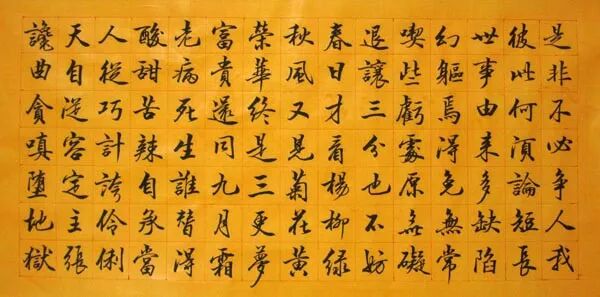 是非不必争人我
彼此何須論短長
世事由来多缺陷
幻軀焉得免無常
喫些虧處原無礙
退讓三分也不妨
春日才看楊柳緑
秋風又見菊花黄
榮華終是三更夢
富貴還同九月霜
老病死生誰替得
酸甜苦辣自承當
人從巧計誇伶俐
天自從容定主張
讒曲貪嗔墮地獄